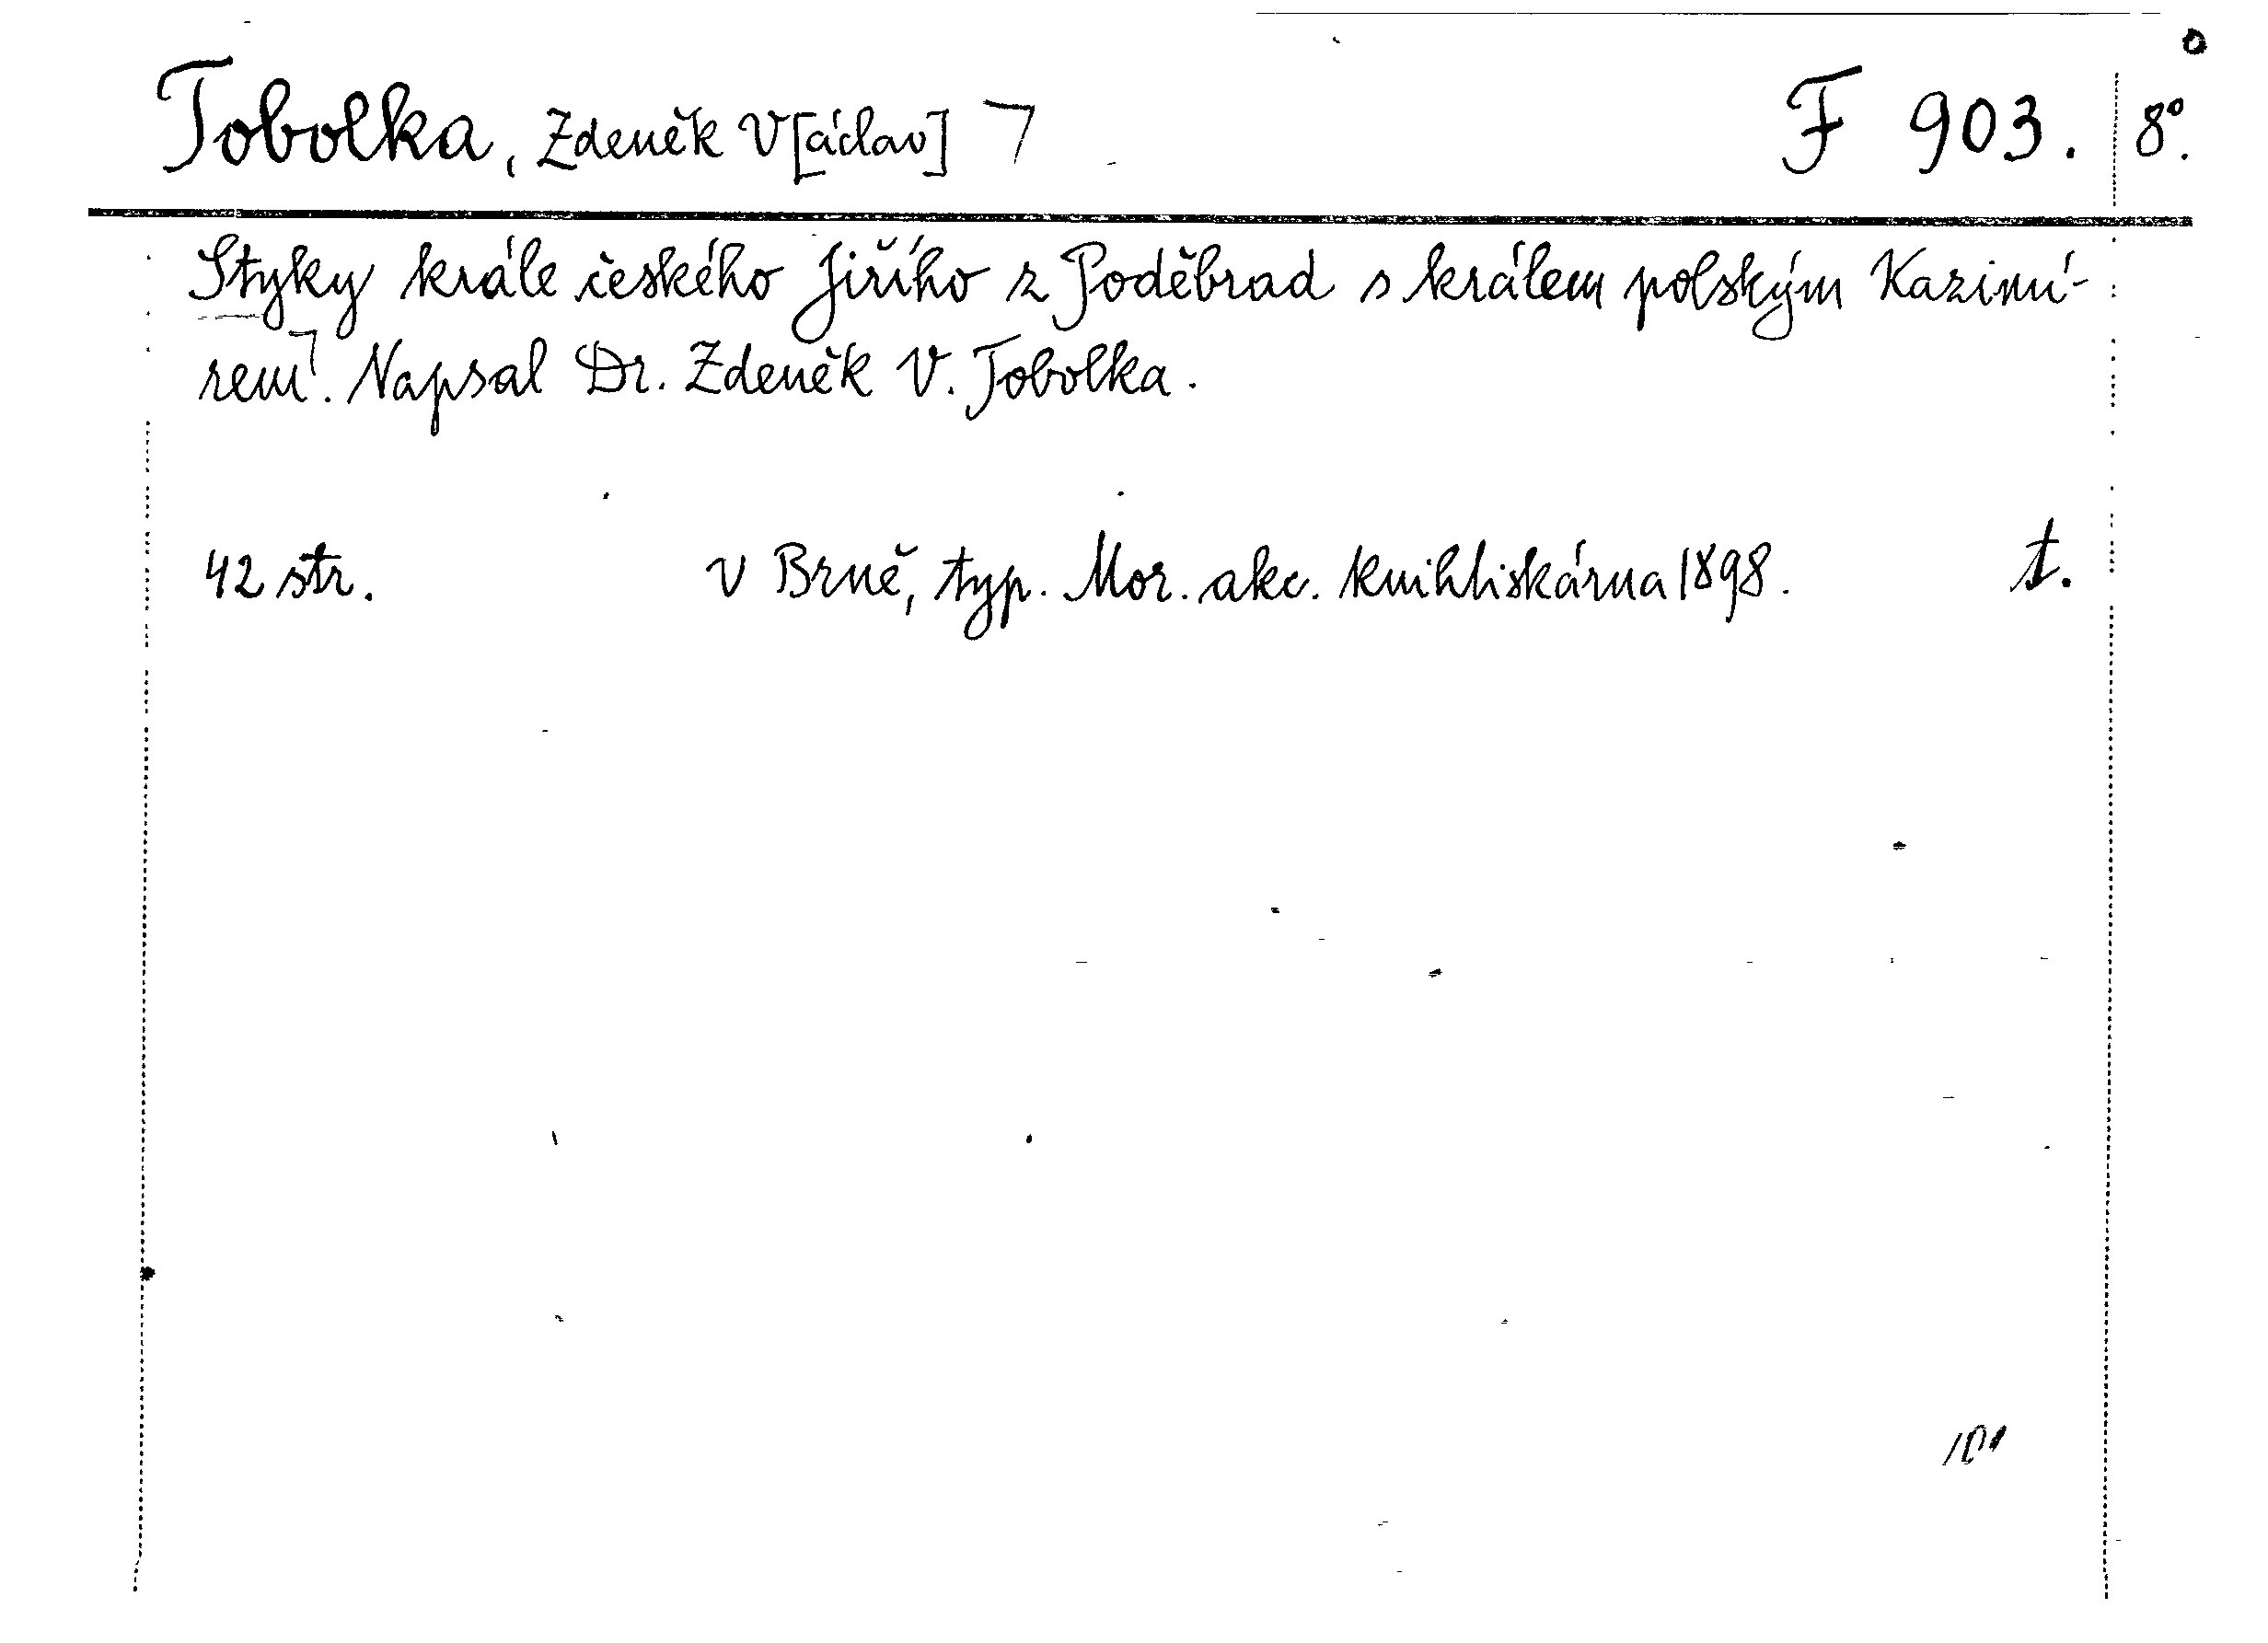 Tobolka, Zdeněk V[áclav] ㄱ F 903. 8°.
Styky krále českého Jiřího z Poděbrad s králem polským Kazimí-
rem. Napsal Dr. Zdeněk V. Tobolka.
42 str. V Brně, typ. Mor. akc. knihtiskárna 1898. t.